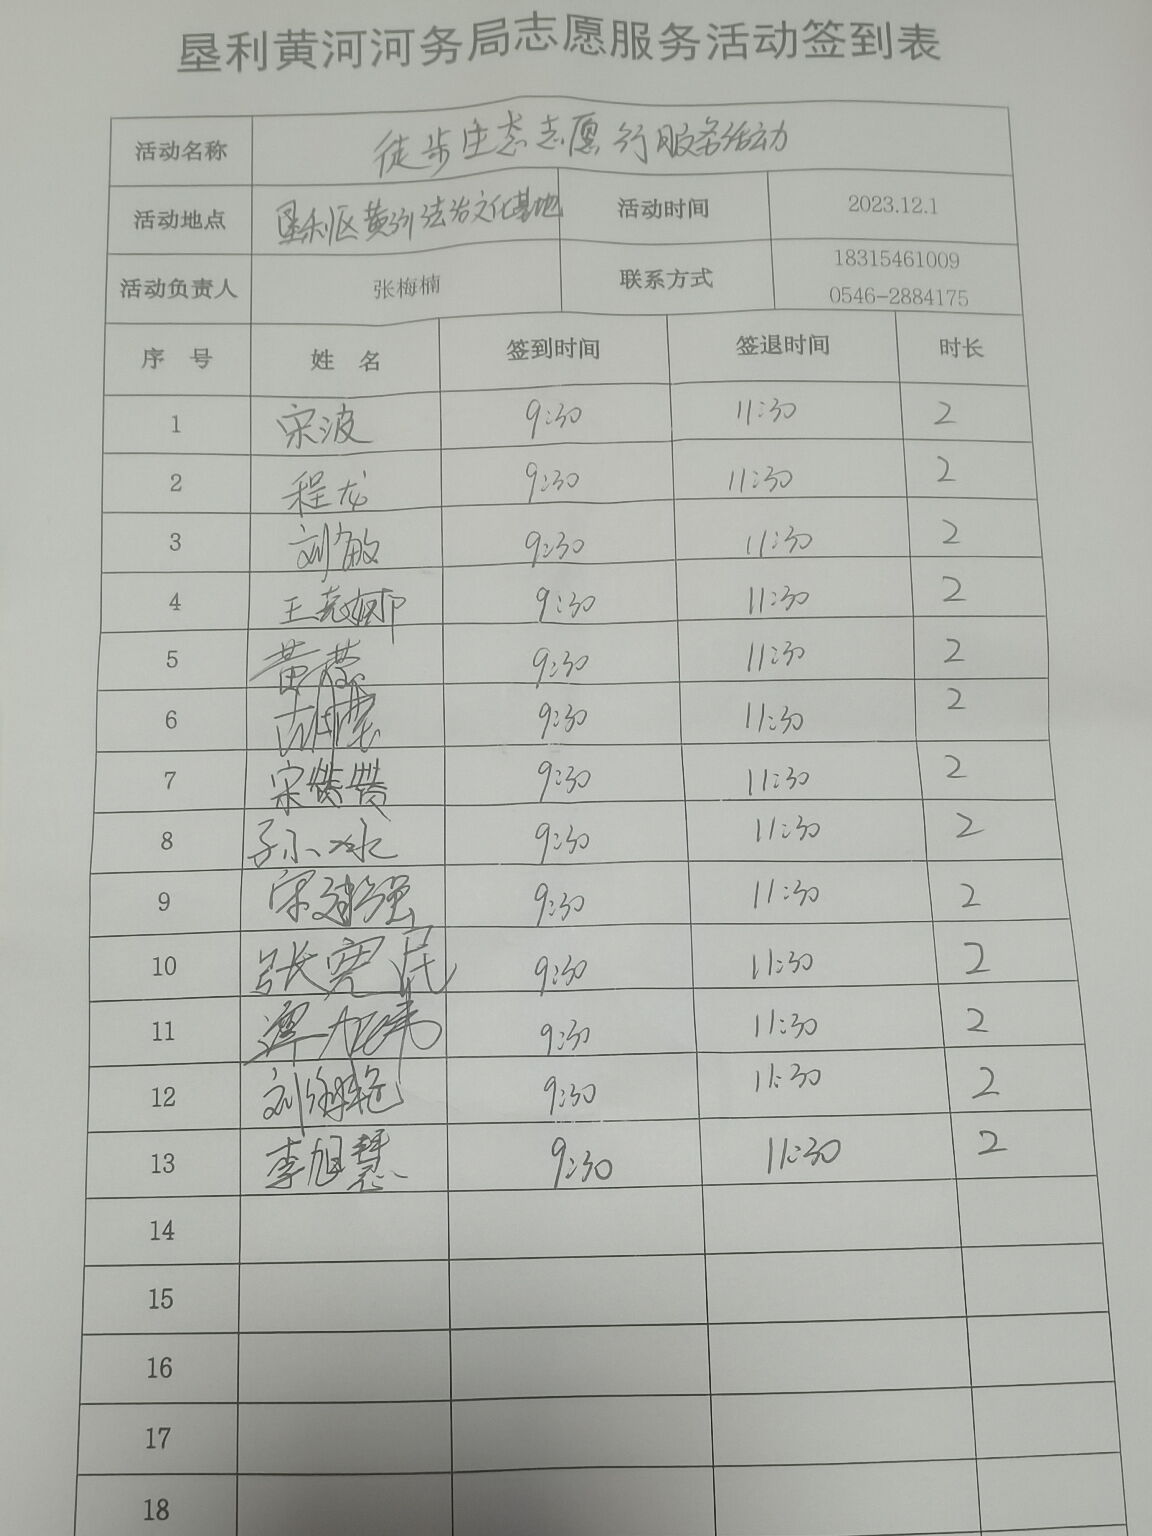 垦利黄河河务局志愿服务活动签到表
活动名称 徒步生态志愿行服务活动
活动地点 垦利区黄河法治文化基地 活动时间 2023.12.1
活动负责人 张梅楠 联系方式 18315461009
0546-2884175
序 号 姓 名 签到时间 签退时间 时长
1 宋波 9:30 11:30 2
2 程龙 9:30 11:30 2
3 刘敏 9:30 11:30 2
4 9:30 11:30 2
5 黄蕊 9:30 11:30 2
6 9:30 11:30 2
7 宋 9:30 11:30 2
8 孙冰 9:30 11:30 2
9 宋建强 9:30 11:30 2
10 张宪民 9:30 11:30 2
11 9:30 11:30 2
12 刘 9:30 11:30 2
13 李旭慧 9:30 11:30 2
14
15
16
17
18